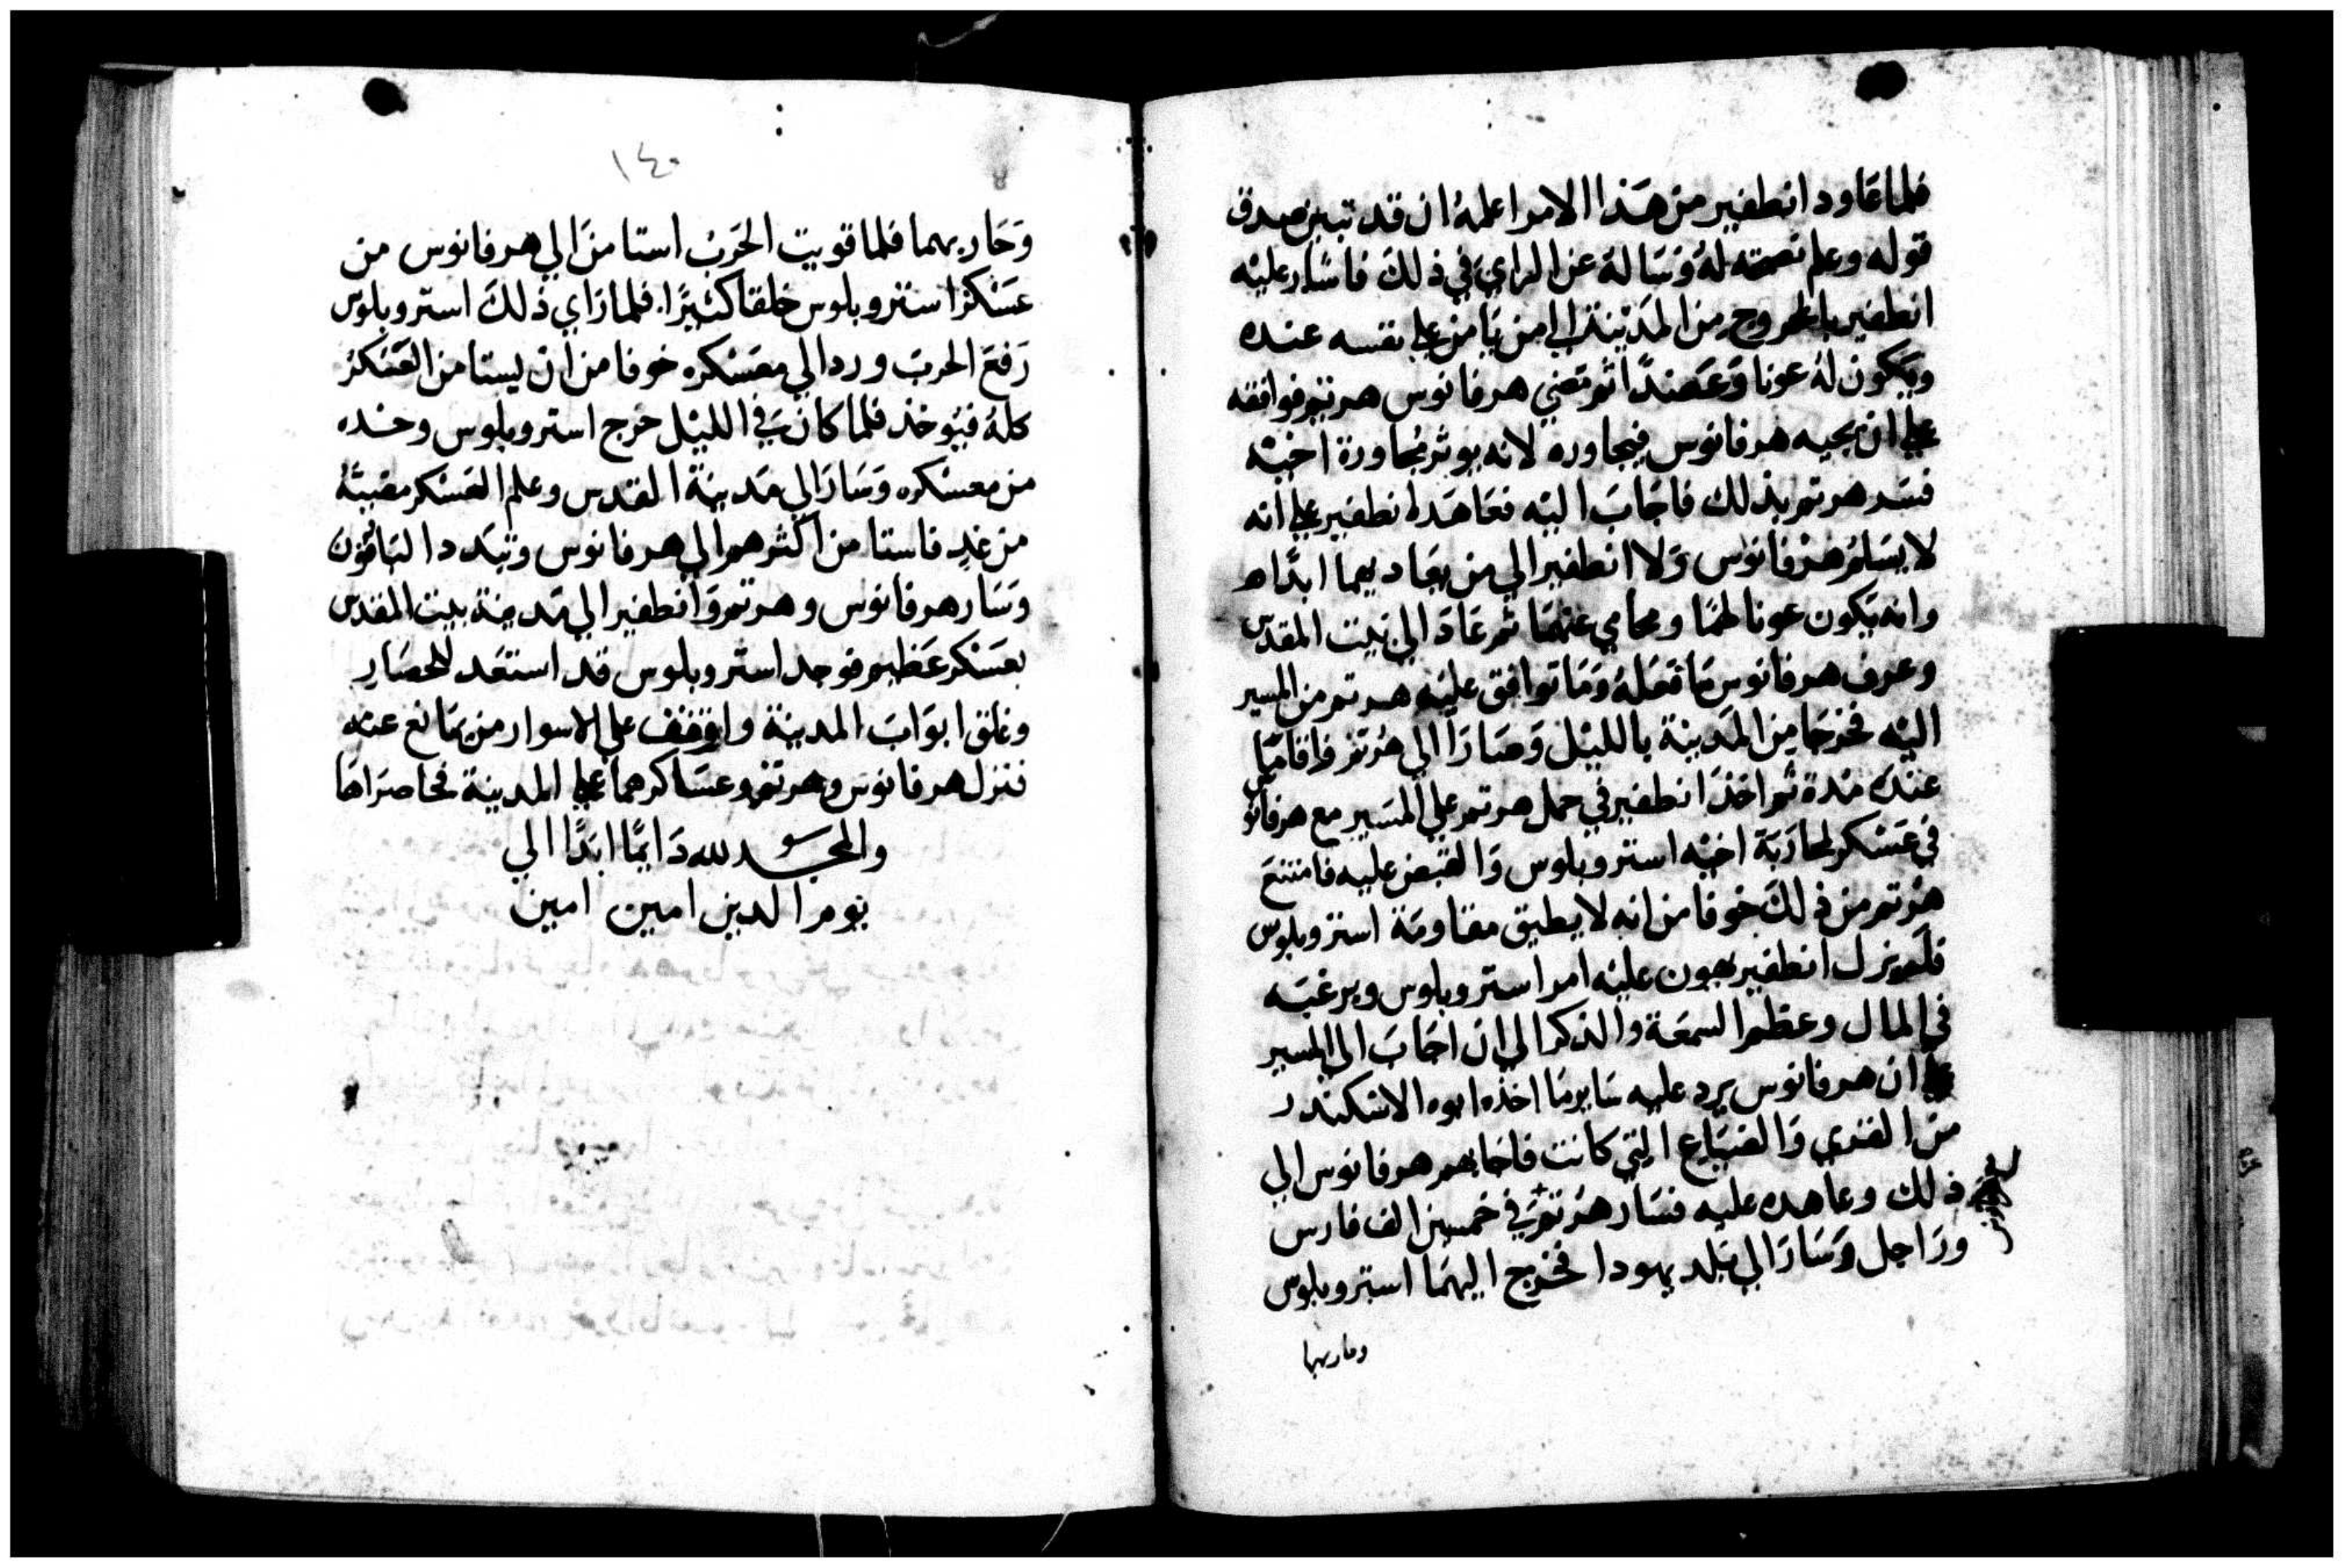 فلما عاود انطفير من هذا الامر اعلمه ان قد تبين صدق
قوله وعلم نصحته له وساله عن الراي في ذلك فاشار عليه
انطفير بالخروج من المدينة الي من يامن علي نفسه عنده
ويكون له عونا وعضدا ثم تمضي هرقانوس هرتم فوافقه
علي ان يجيه هرقانوس فيجاوره لانه يوثر مجاورة اخيه
فسر هرتم بذلك فاجاب اليه فعاهده انطفير علي انه
لا يسلم هرقانوس ولا انطفير الي من يعاديهما ابدا
وانه يكون عونا لهما ومحامي عنهما ثم عاد الي بيت المقدس
وعرف هرقانوس ما فعله وما توافق عليه هرتم من المسير
اليه فخرجا من المدينة بالليل وصارا الي هرتم فاقاما
عنده مدة ثم اخذ انطفير في حمل هرتم علي المسير مع هرقانوس
في عسكر لمحاربة اخيه استروبلوس والقبض عليه فامتنع
هرتم من ذلك خوفا من انه لا يطيق مقاومة استروبلوس
فلم يزل انطفير يهون عليه امر استروبلوس ويرغبه
في المال وعظم السمعة والذكر الي ان اجاب الي المسير
علي ان هرقانوس يرد عليه ساير ما اخذه ابوه الاسكندر
من القري والضياع التي كانت فاجابهم هرقانوس الي
ذلك وعاهده عليه فسار هرتم في خمسين الف فارس
وراجل وسارا الي بلد يهودا فخرج اليهما استروبلوس
وحاربهما
١٤٠
وحاربهما فلما قويت الحرب استامن الي هرقانوس من
عسكر استروبلوس خلقا كثيرا فلما راي ذلك استروبلوس
رفع الحرب ورد الي معسكره خوفا من ان يستامن العسكر
كله فيوخذ فلما كان في الليل خرج استروبلوس وحده
من معسكره وسار الي مدينة القدس وعلم العسكر مضيه
من غد فاستامن اكثرهم الي هرقانوس وتبدد الباقون
وسار هرقانوس وهرتم وانطفير الي مدينة بيت المقدس
بعسكر عظيم فوجد استروبلوس قد استعد للحصار
وغلق ابواب المدينة واوقف علي الاسوار من يمانع عنه
فنزل هرقانوس وهرتم وعساكرهما علي المدينة فحاصراها
والمجد لله دايما ابدا الي
يوم الدين امين امين